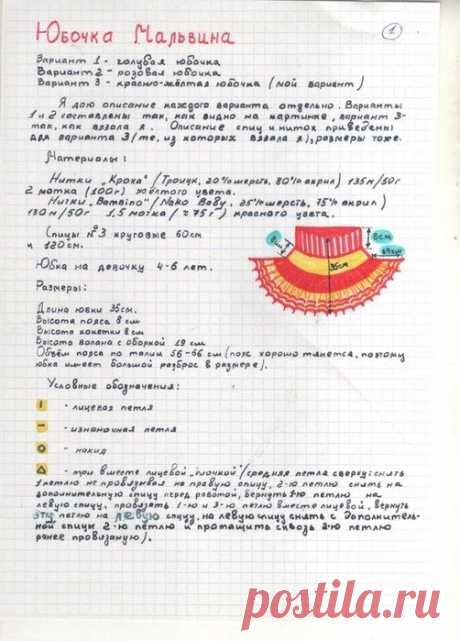 Юбочка Мальвина
1
Вариант 1 - голубая юбочка
Вариант 2 - розовая юбочка
Вариант 3 - красно-жёлтая юбочка (мой вариант)
Я даю описание каждого варианта отдельно. Варианты
1 и 2 составлены так, как видно на картинке, вариант 3-
так, как вязала я. Описание спиц и ниток приведены
для варианта 3 /те, из которых вязала я), размеры тоже.
Материалы:
Нитки „Кроха" /Троицк, 20% шерсть, 80% акрил) 135м/50г
2 мотка (100г) жёлтого цвета.
Нитки „Bambino" / Nako Baby, 25% шерсть, 75% акрил)
130м/50г 1,5 мотка / ≈ 75г) красного цвета.
Спицы №3 круговые 60см
и 120см.
Юбка на девочку 4-6 лет.
8см
35см
Размеры:
Длина юбки 35см.
Высота пояса 8 см
Высота кокетки 8 см
Высота волана с оборкой 19 см
Объём пояса по талии 56-66 см (пояс хорошо тянется, поэтому
юбка имеет большой разброс в размере).
Условные обозначения:
I - лицевая петля
– - изнаночная петля
O - накид
△ - три вместе лицевой „ёлочкой" /средняя петля сверху: снять
1 петлю не провязывая на правую спицу, 2-ю петлю снять на
дополнительную спицу перед работой, вернуть 1-ю петлю на
левую спицу, провязать 1-ю и 3-ю петлю вместе лицевой, вернуть
эту петлю на левую спицу, на левую спицу снять с дополнитель-
ной спицы 2-ю петлю и протащить сквозь 2-ю петлю
ранее провязаную).
postila.ru